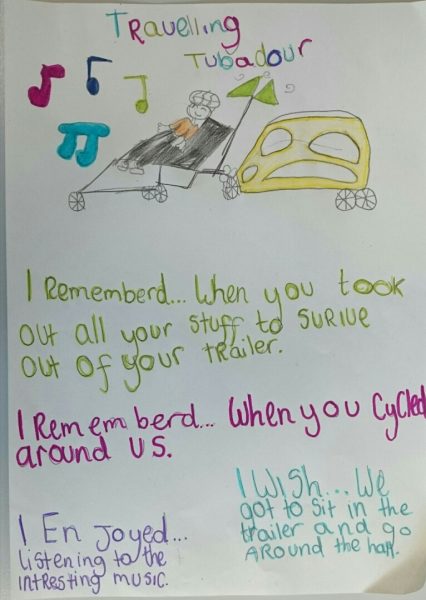 Travelling
Tubadour
I Rememberd... When you took
out all your stuff to surive
out of your trailer.
I Rememberd... When you cycled
around us.
I Wish... We
got to sit in the
trailer and go
around the hall.
I Enjoyed...
listening to the
intresting music.